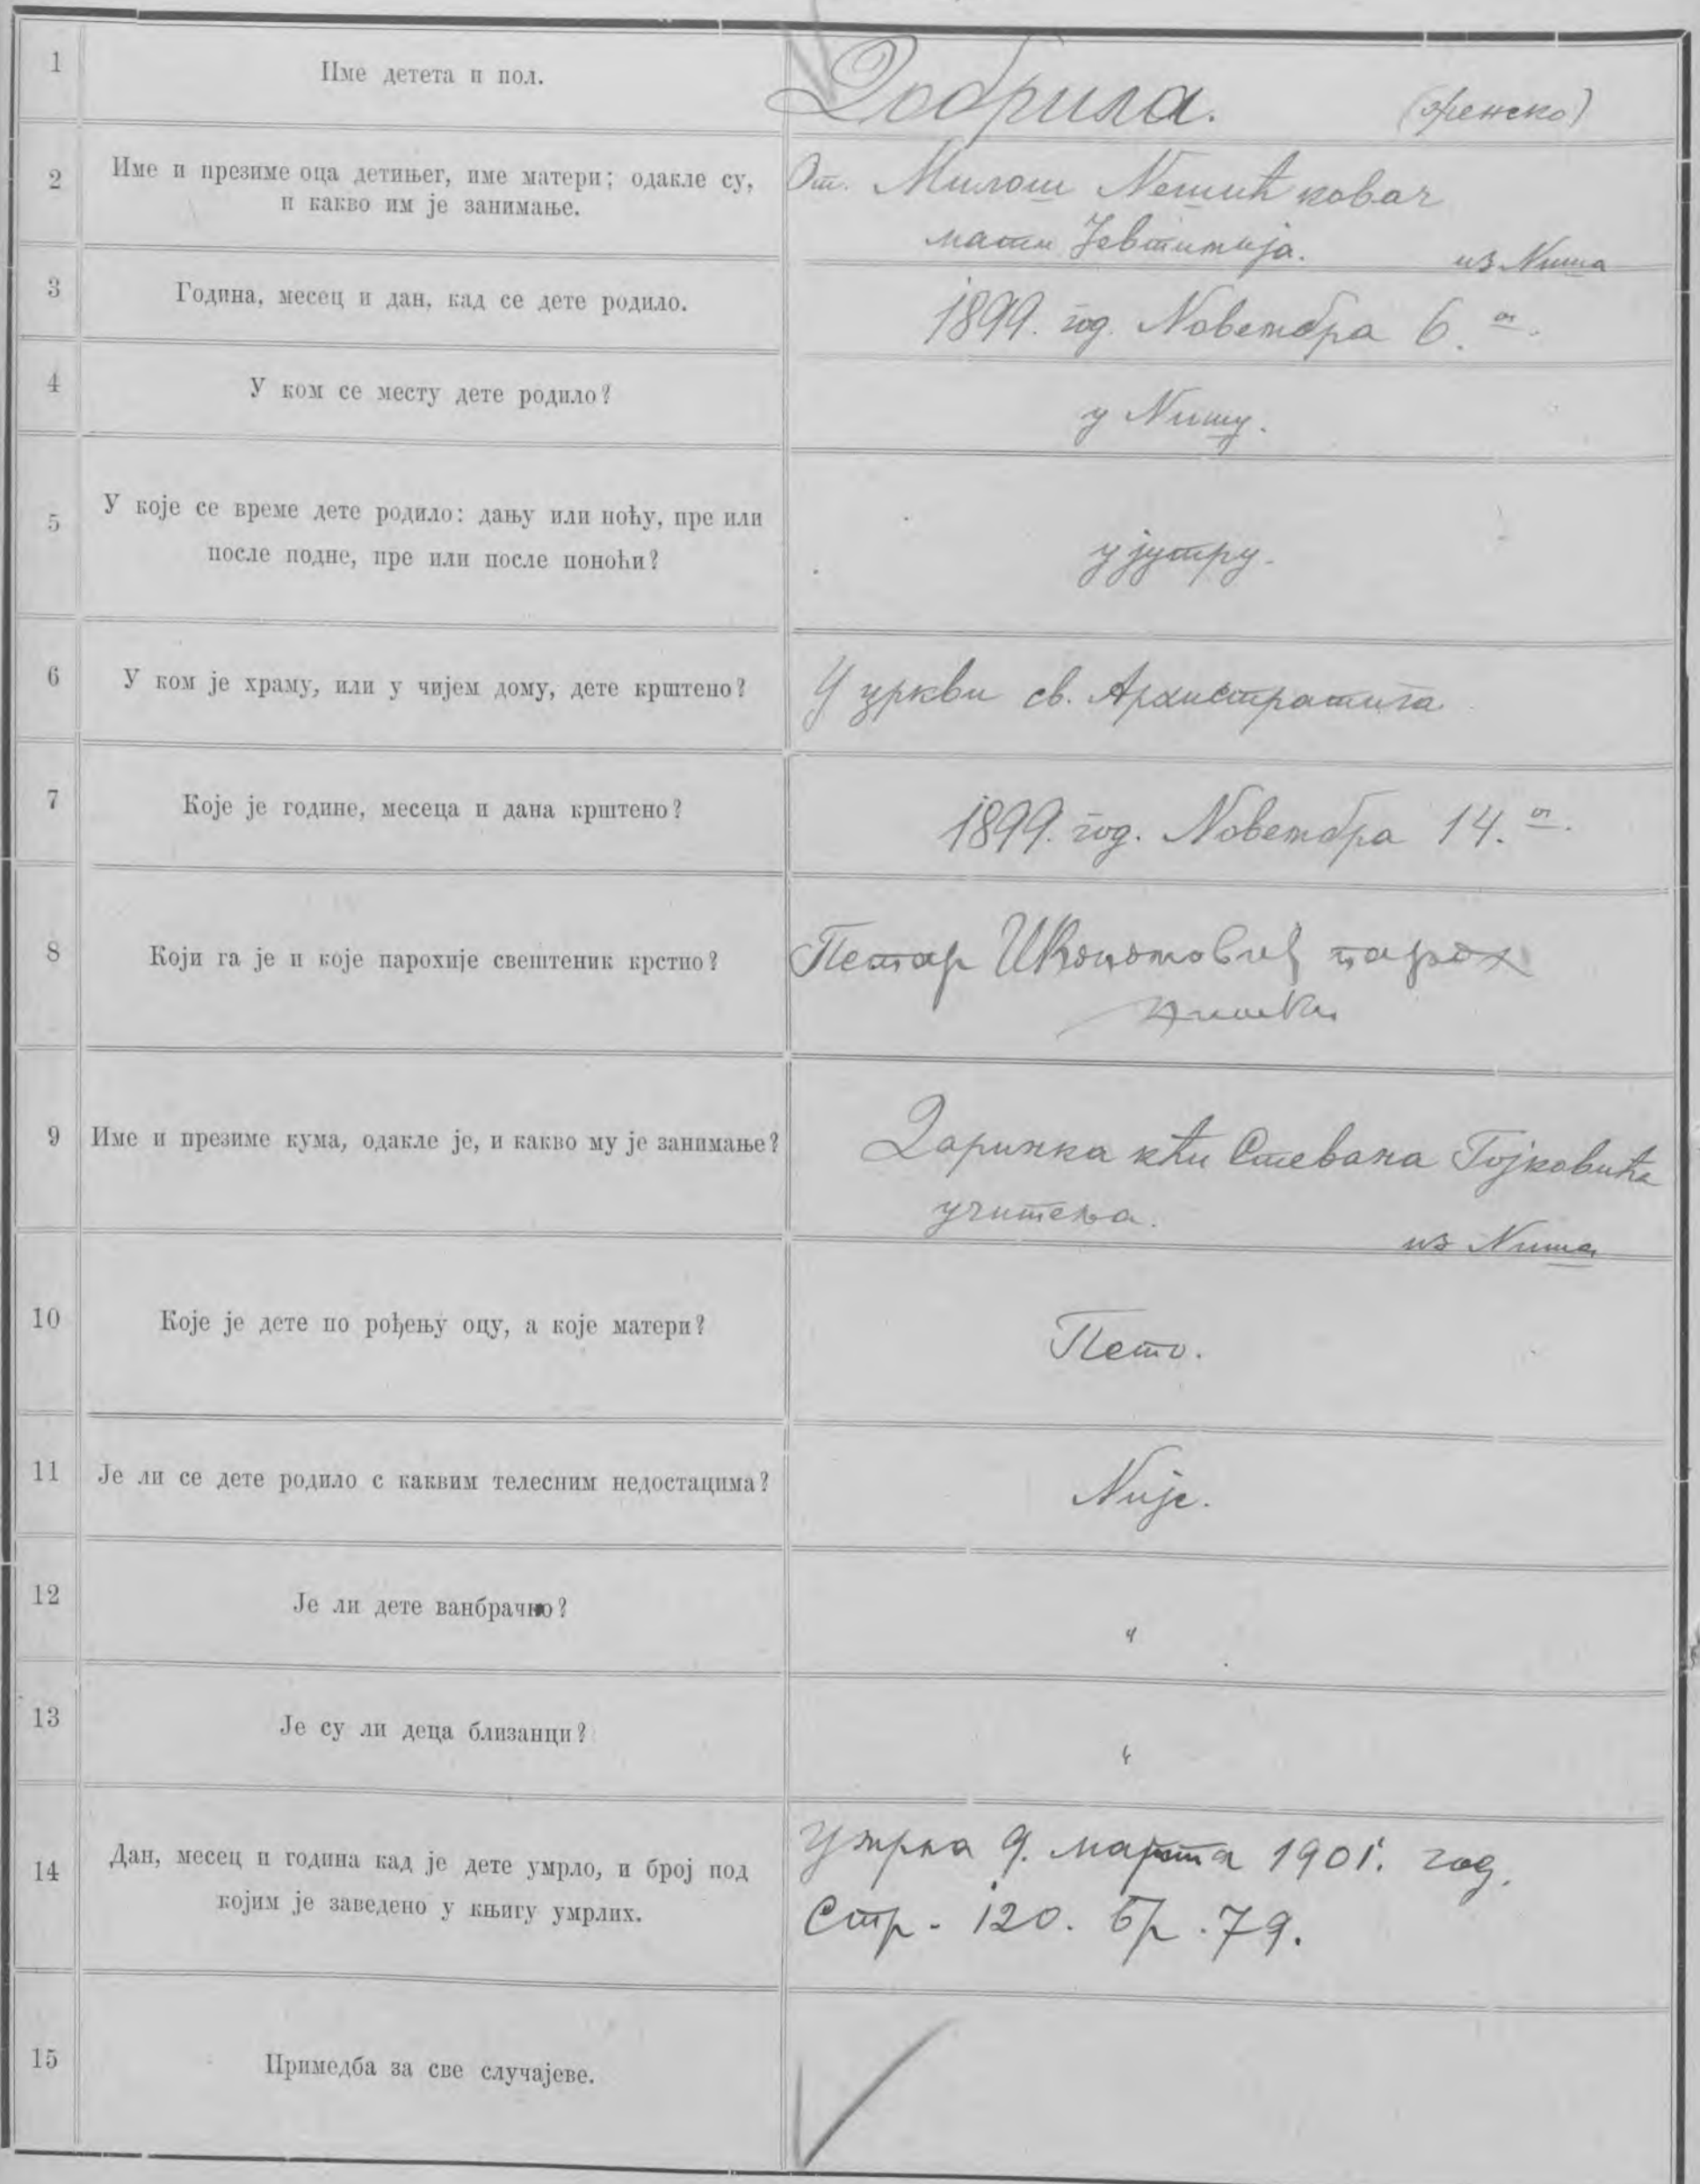 1
Име детета и пол.
Добрила. (женско)
2
Име и презиме оца детињег, име матери; одакле су,
и какво им је занимање.
От. Милош Нешић ковач
мати Јевтимија. из Ниша
3
Година, месец и дан, кад се дете родило.
1899. год. Новембра 6.
4
У ком се месту дете родило?
у Нишу.
5
У које се време дете родило: дању или ноћу, пре или
после подне, пре или после поноћи?
у јутру.
6
У ком је храму, или у чијем дому, дете крштено?
У цркви св. Архистратига
7
Које је године, месеца и дана крштено?
1899. год. Новембра 14.
8
Који га је и које парохије свештеник крстио?
Петар Икономовић парох
нишки
9
Име и презиме кума, одакле је, и какво му је занимање?
Даринка кћи Стевана Гојковића
учитеља.
из Ниша
10
Које је дете по рођењу оцу, а које матери?
Пето.
11
Је ли се дете родило с каквим телесним недостацима?
Није.
12
Је ли дете ванбрачно?
"
13
Је су ли деца близанци?
"
14
Дан, месец и година кад је дете умрло, и број под
којим је заведено у књигу умрлих.
Умрла 9. марта 1901. год.
Стр. 120. Бр. 79.
15
Примедба за све случајеве.